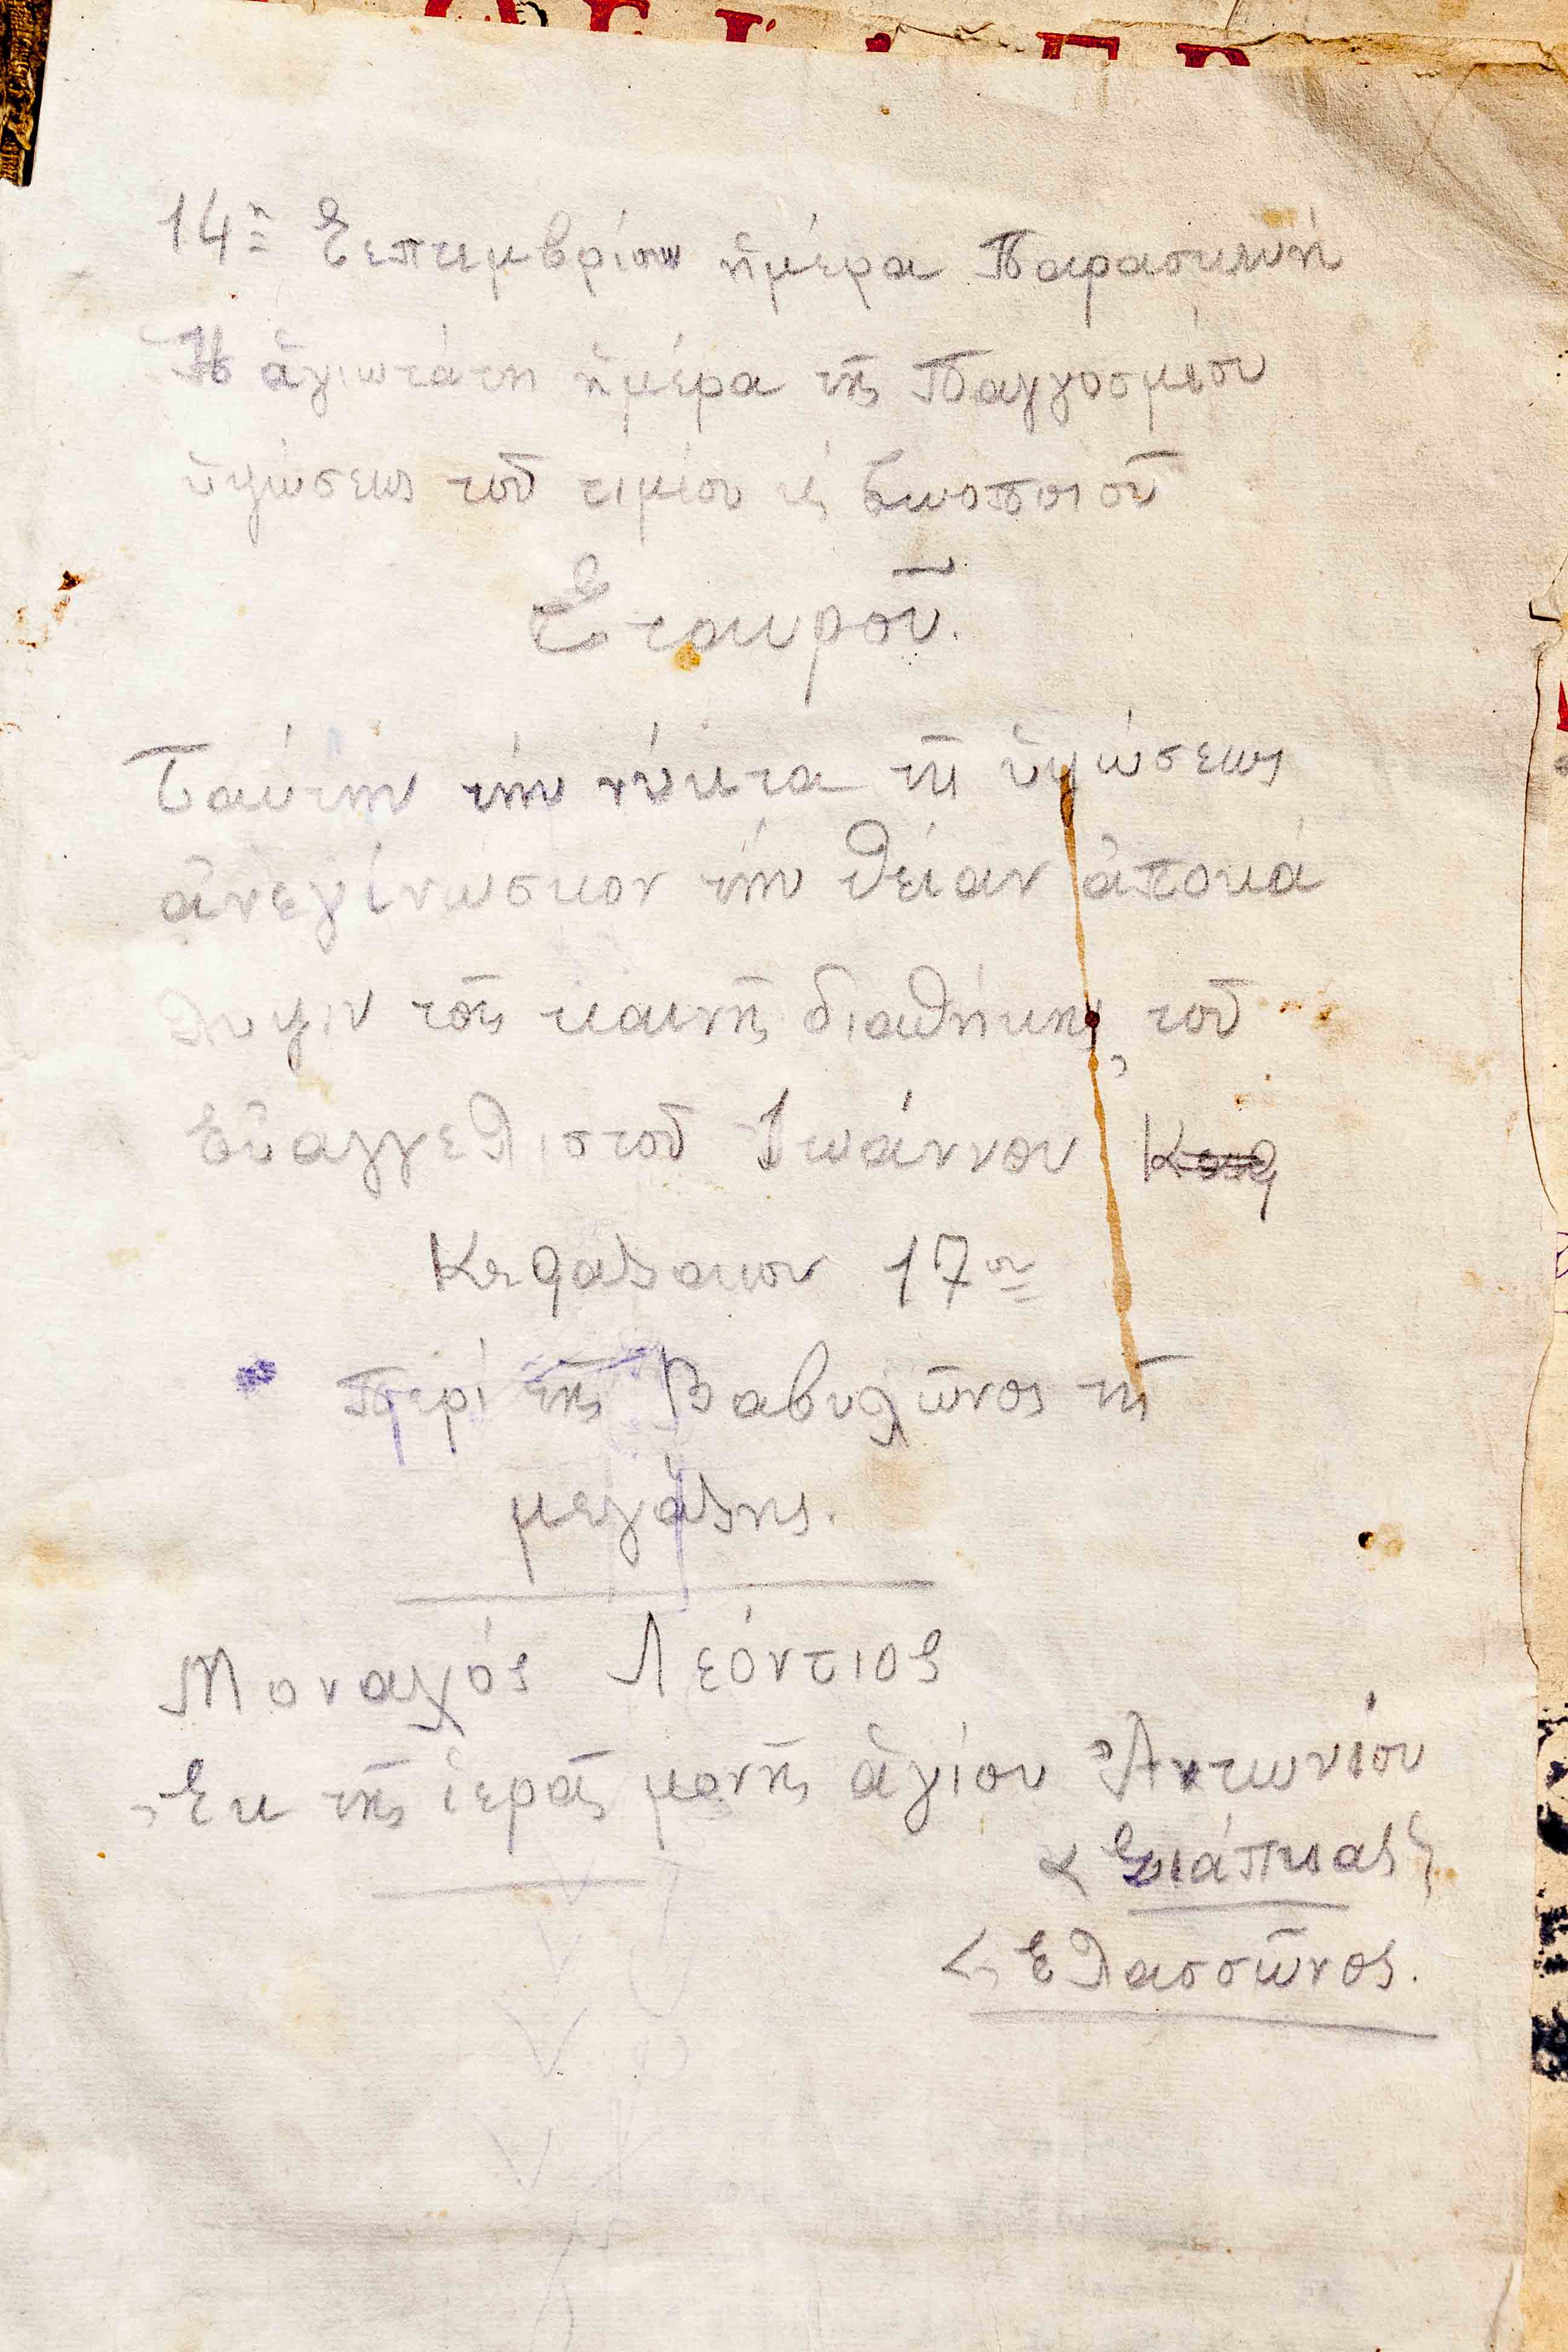 14η Σεπτεμβρίου ἡμέρα Παρασκευή
Ἡ ἁγιωτάτη ἡμέρα τῆς Παγγοσμίου
ὑψώσεως τοῦ τιμίου ϗ ζωοποιοῦ
Σταυροῦ.
Ταύτην τήν νύκτα τῆς ὑψώσεως
ἀνεγίνωσκον τήν θείαν ἀποκά
λυψιν τῆς καινῆς διαθήκης, τοῦ
Εὐαγγελιστοῦ Ἰωάννου
Κεφάλαιον 17ον
περί τῆς Βαβυλῶνος τῆς
μεγάλης.
Μοναχός Λεόντιος
Ἐκ τῆς ἱερᾶς μονῆς ἁγίου Ἀντωνίου
Σιάπκας
Ελασσῶνος.